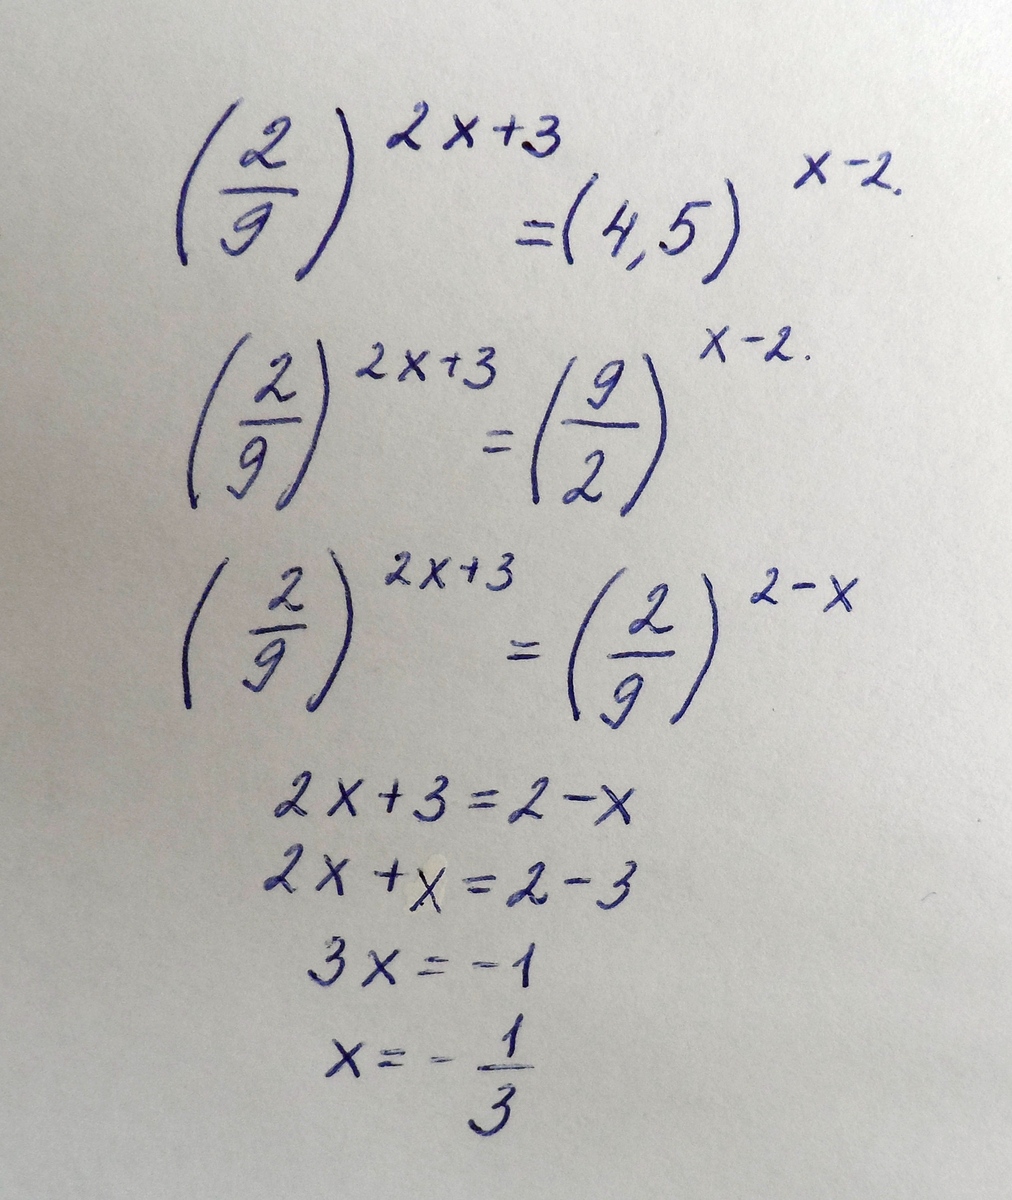 (2/9)^(2x+3) = (4,5)^(x-2.)
(2/9)^(2x+3) = (9/2)^(x-2.)
(2/9)^(2x+3) = (2/9)^(2-x)
2x+3=2-x
2x+x=2-3
3x=-1
x=-1/3